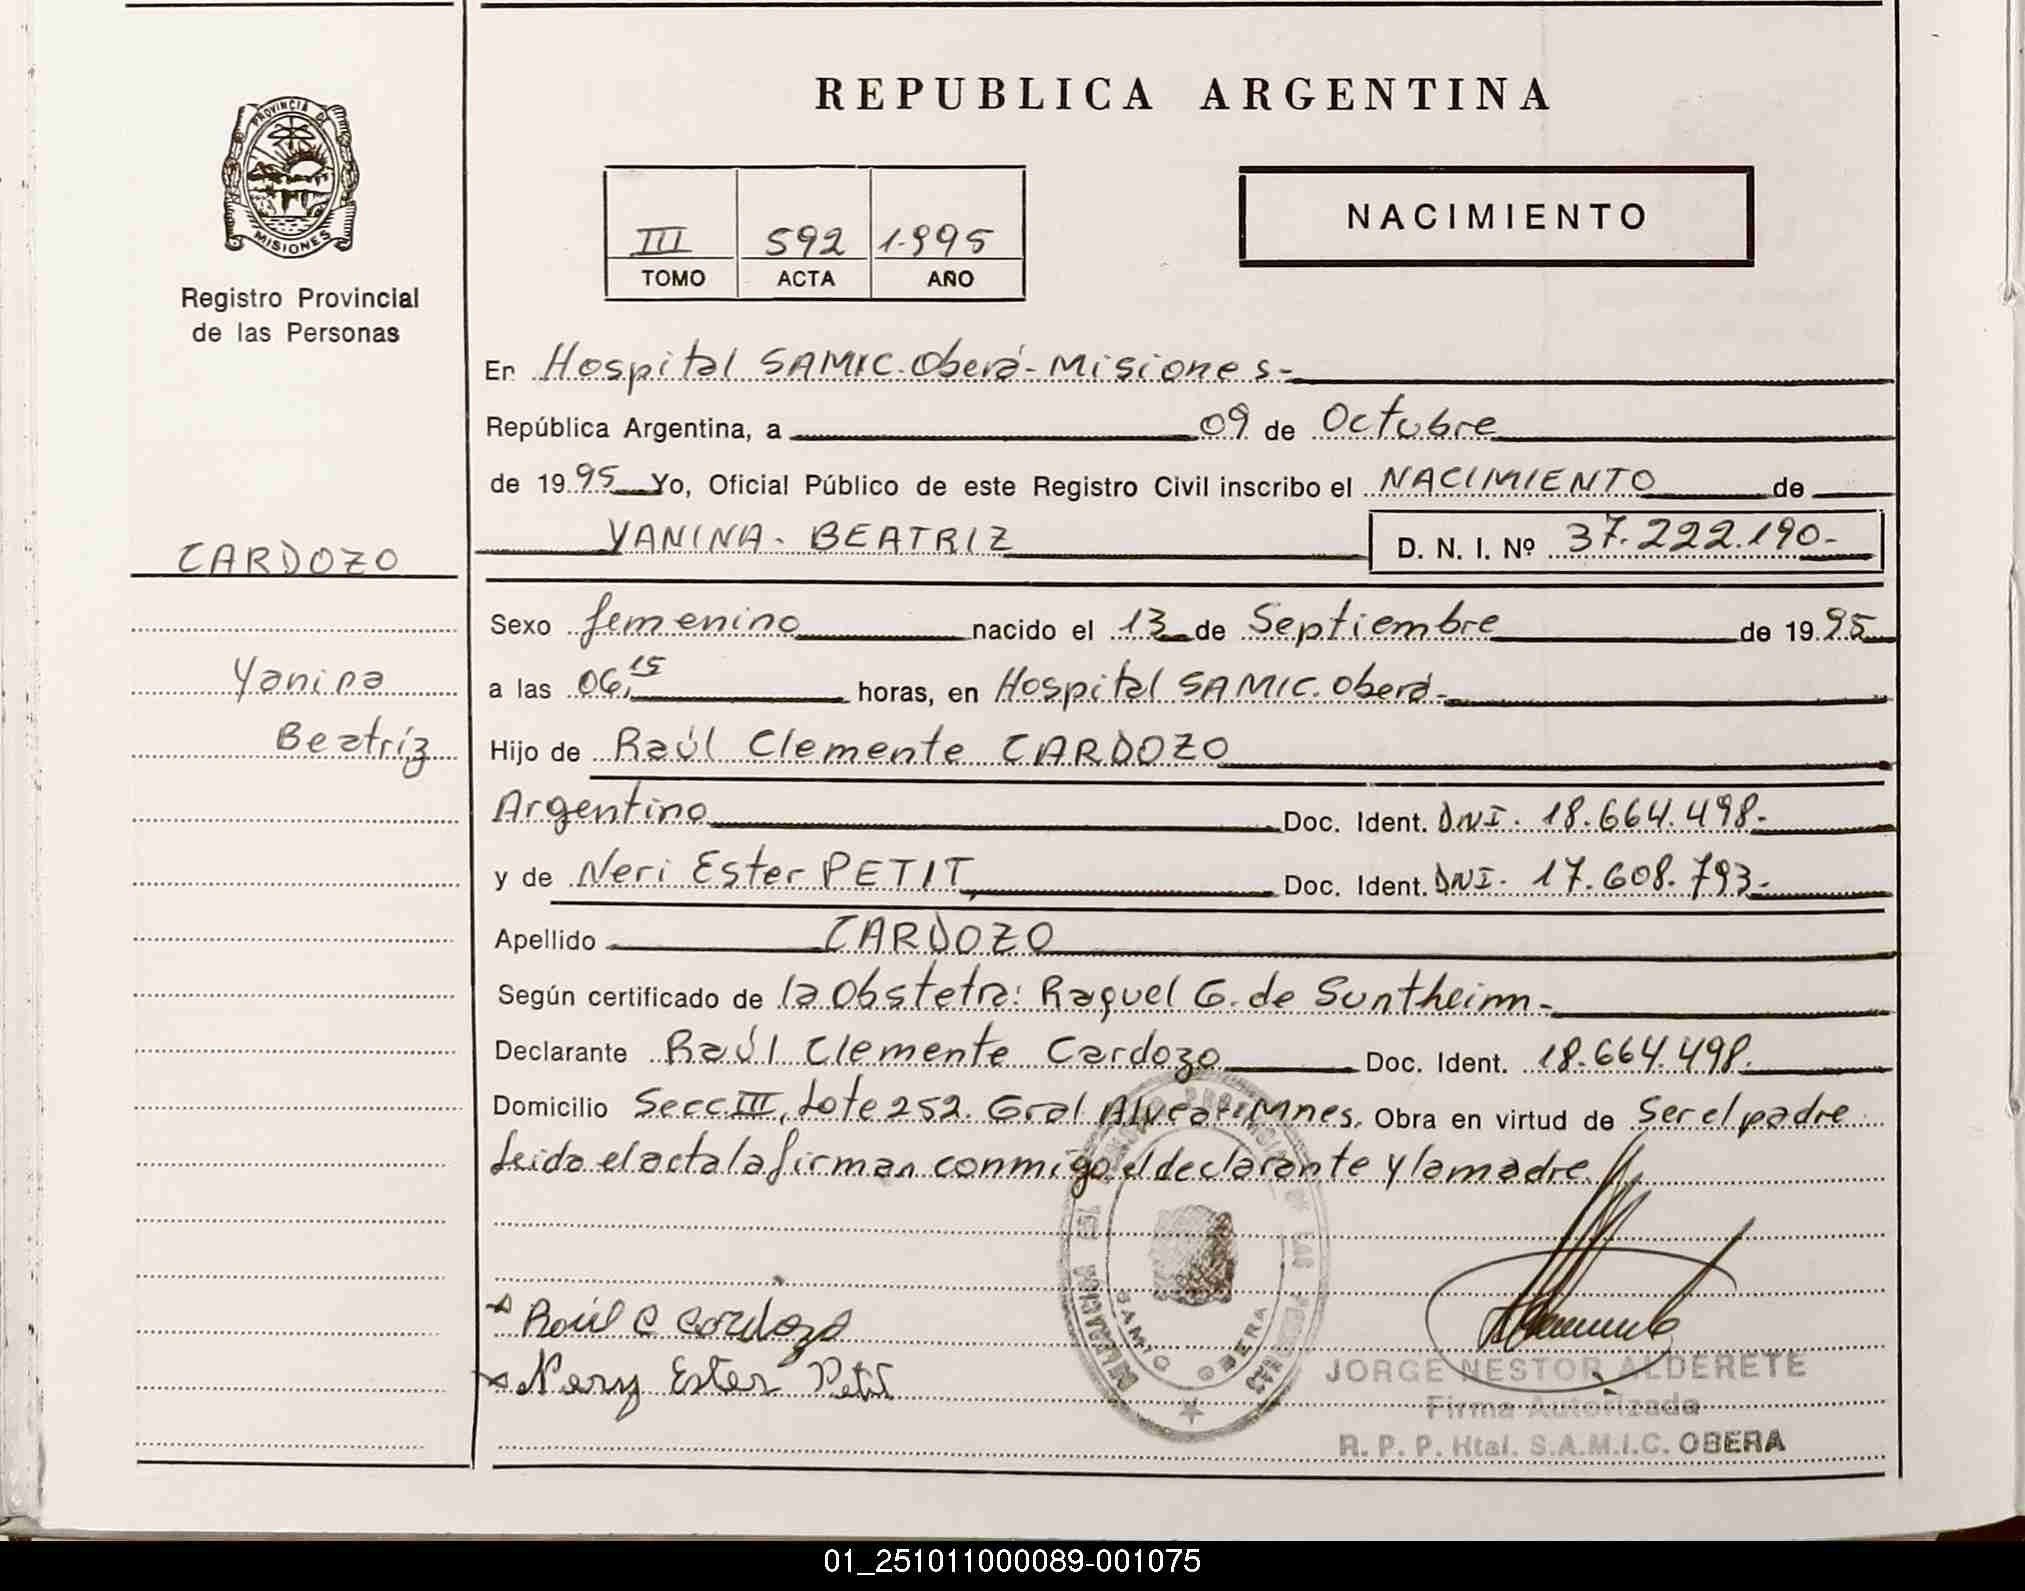 REPUBLICA ARGENTINA
PROVINCIA DE
MISIONES
Registro Provincial
de las Personas
III 592 1.995
TOMO ACTA AÑO
NACIMIENTO
En Hospital SAMIC. Oberá - Misiones -
República Argentina, a 09 de Octubre
de 1995 Yo, Oficial Público de este Registro Civil inscribo el NACIMIENTO de
YANINA - BEATRIZ D. N. I. Nº 37.222.190-
CARDOZO
Yanina
Beatríz
Sexo femenino nacido el 13 de Septiembre de 1995
a las 06,15 horas, en Hospital SAMIC. Oberá-
Hijo de Raúl Clemente CARDOZO
Argentino Doc. Ident. DNI. 18.664.498-
y de Neri Ester PETIT, Doc. Ident. DNI. 17.608.793-
Apellido CARDOZO
Según certificado de la Obstetra: Raquel G. de Suntheim-
Declarante Raúl Clemente Cardozo Doc. Ident. 18.664.498.
Domicilio Secc. III, Lote 252. Gral Alvear-Mnes. Obra en virtud de Ser el padre
Leida el acta la firman conmigo el declarante y la madre.
Raúl C Cardozo
Nery Ester Petit
SAMIC OBERA
JORGE NESTOR ALDERETE
Firma Autorizada
R. P. P. Htal. S.A.M.I.C. OBERA
01_251011000089-001075